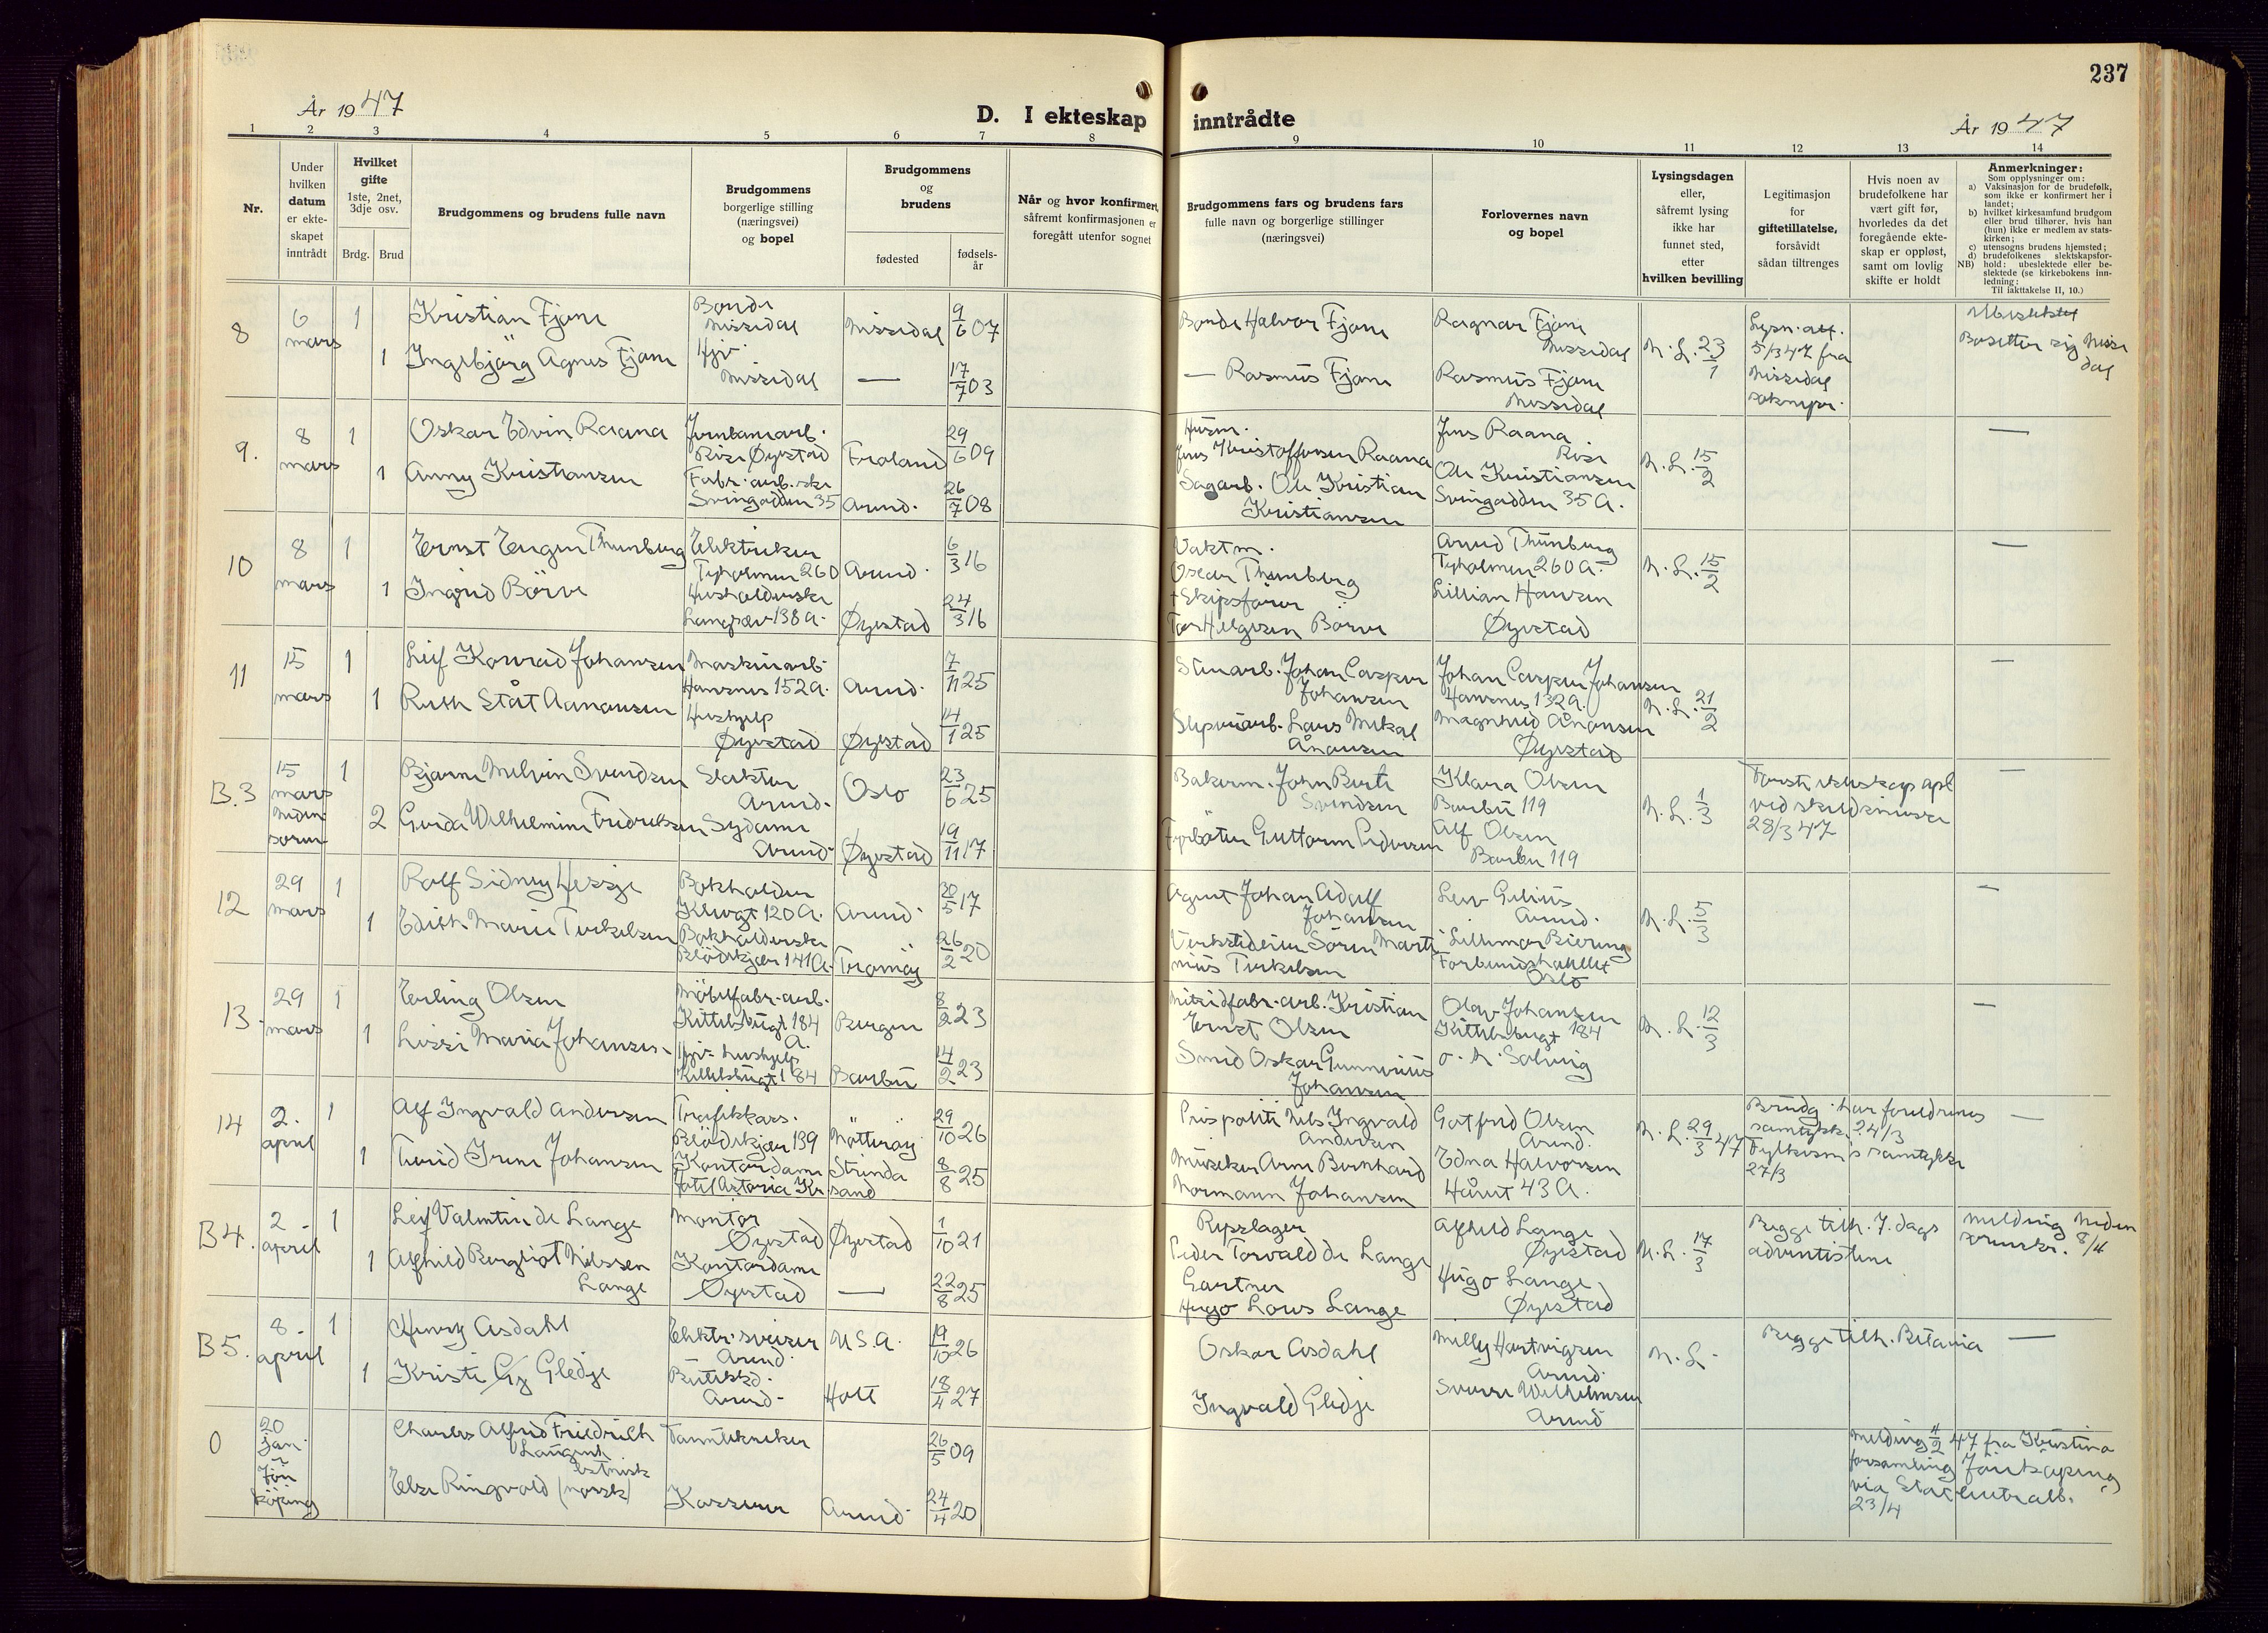 237
År 1947
D. I ekteskap inntrådte
År 1947
1 2 3 4 5 6 7 8 9 10 11 12 13 14
Nr.
Under
hvilken
datum
er ekte-
skapet
inntrådt
Hvilket
gifte
1ste, 2net,
3dje osv.
Brdg. Brud
Brudgommens og brudens fulle navn
Brudgommens
borgerlige stilling
(næringsvei)
og bopel
Brudgommens
og
brudens
fødested
fødsels-
år
Når og hvor konfirmert,
såfremt konfirmasjonen er
foregått utenfor sognet
Brudgommens fars og brudens fars
fulle navn og borgerlige stillinger
(næringsvei)
Forlovernes navn
og bopel
Lysingsdagen
eller,
såfremt lysing
ikke har
funnet sted,
etter
hvilken bevilling
Legitimasjon
for
giftetillatelse,
forsåvidt
sådan tiltrenges
Hvis noen av
brudefolkene har
vært gift før,
hvorledes da det
foregående ekte-
skap er oppløst,
samt om lovlig
skifte er holdt
Anmerkninger:
Som opplysninger om:
a) Vaksinasjon for de brudefolk,
som ikke er konfirmert her i
landet;
b) hvilket kirkesamfund brudgom
eller brud tilhører, hvis han
(hun) ikke er medlem av stats-
kirken;
c) utensogns brudens hjemsted;
d) brudefolkenes slektskapsfor-
NB) hold: ubeslektede eller be-
slektede (se kirkebokens inn-
ledning;
Til iakttakelse II, 10.)
8
6
mars
1
1
Kristian Fjone
Ingebjörg Agnes Fjone
Bonde
Nissedal
Hjv.
Nissedal
Nissedal
—
9/6 07
17/7 03
Bonde Halvor Fjone
— Rasmus Fjone
Ragnar Fjone
Nissedal
Rasmus Fjone
Nissedal
N. L. 23/1
Lysn. att.
5/3 47 fra
Nissedal
soknepr.
Ubeslektet
Bosetter sig Nisse
dal
9.
8
mars
1
1
Oskar Edvin Raana
Anny Kristiansen
Jernbanearb.
Rise Øyestad
Fabr. arb.ske
Svingodden 35
Froland
Arend.
29/6 09
26/7 08
Husm.
Jens Kristoffersen Raana
Sagarb. Ole Kristian
Kristiansen
Jens Raana
Rise
Ole Kristiansen
Svingodden 35 A.
N. L. 15/2
—
10
8
mars
1
1
Ernst Eugen Thunberg
Ingrid Börve
Elektriker
Tyholmen 260
Husholderske
Langsæv 138 a.
Arend.
Øyestad
6/3 16
24/3 16
Vaktm.
Oscar Thunberg
+ Skipsfører
Tor Helgesen Börve
Arvid Thunberg
Tyholmen 260 A.
Lillian Hansen
Øyestad
N. L. 15/2
—
11
15
mars
1
1
Leif Konrad Johansen
Ruth Ståt Aanonsen
Maskinarb.
Hausnes 152 a.
Hushjelp
Øyestad
Arend.
Øyestad
7/11 25
14/1 25
Stenarb. Johan Casper
Johansen
Sliperiarb. Lars Mikal
Ånonsen
Johan Casper Johansen
Havsnes 132 a.
Magnhild Ånonsen
Øyestad
N. L. 21/2
—
B.3
15
mars
1
2
Bjarne Melvin Svendsen
Gerda Wilhelmine Fredriksen
Slakter
Arend.
Sydame
Arend.
Oslo
Øyestad
23/6 25
19/11 17
Bakerm. John Berti
Svendsen
Fyrböter Guttorm Pedersen
Klara Olsen
Barbu 119
Alf Olsen
Barbu 119
N. L. 1/3
Første ekteskap opl.
ved skilsmisse
28/3 47
—
12
29
mars
1
1
Rolf Sidney Hessje
Edith Marie Terkelsen
Bokholder
120 A.
Bokholderske
Blödekjær 141 A.
Arend.
Tromöy
30/5 17
26/2 20
Agent Johan Adolf
Johansen
Verkstedeier Sören Marti
nius Terkelsen
Leiv Gelius
Arend.
Lillemor Biering
Forbundshotellet
Oslo
N. L. 5/3
—
13
29
mars
1
1
Erling Olsen
Lissi Maria Johansen
Möbelfabr. arb.
Kittelsbugt 184
A.
Hjv. hushjelp
Kittelsbugt 184
Bergen
Barbu
8/2 23
14/2 23
Nitridfabr. arb. Kristian
Ernst Olsen
Smed Oskar Gunnerius
Johansen
Olav Johansen
Kittelsbugt 184
o. h. Solveig
N. L. 12/3
—
14
2.
april
1
1
Alf Ingvald Andersen
Turid Irene Johansen
Trafikkass.
Blödekjær 139
Kontordame
Hotel Astoria Kr.sand
Nötteröy
Strinda
29/10 26
8/8 25
Prispoliti Nils Ingvald
Andersen
Musiker Arne Bernhard
Normann Johansen
Gotfred Olsen
Arend.
Edna Halvorsen
Håvet 43 A.
N. L. 29/3 47
Brudg. har foreldrenes
samtykke 24/3
Fylkesm's samtykke
27/3
—
B 4.
2 -
april
1
1
Leif Valentin de Lange
Alfhild Bergliot Nilssen
Lange
Montör
Øyestad
Kontordame
Øyestad
Øyestad
—
1/10 21
22/8 25
Repslager
Peder Torvald de Lange
Gartner
Hugo Louis Lange
Alfhild Lange
Øyestad
Hugo Lange,
Øyestad
N. L. 17/3
Begge tilh. 7. dags
adventistene
Melding Neden
sorenskr. 8/4
B 5.
8 -
april
1
1
Henry Asdahl
Kristi Gledje
Elektr. sveiser
Arend.
Butikkd.
Arend.
U.S.A.
Holt
19/10 26
18/4 27
Oskar Asdahl
Ingvald Gledje
Milly Hartvigsen
Arend.
Sverre Wilhelmsen
Arend.
N. L.
Begge tilh. Betania
—
0
20
jan.
i
Jön
köping
Charles Alfred Friedrich
estnisk
Else Ringvold (norsk)
Tanntekniker
Kasserer
Arend.
26/5 09
24/4 20
Melding 4/2 47 fra Kristina
forsamling Jönköping
via Stat. Sentralb.
23/4